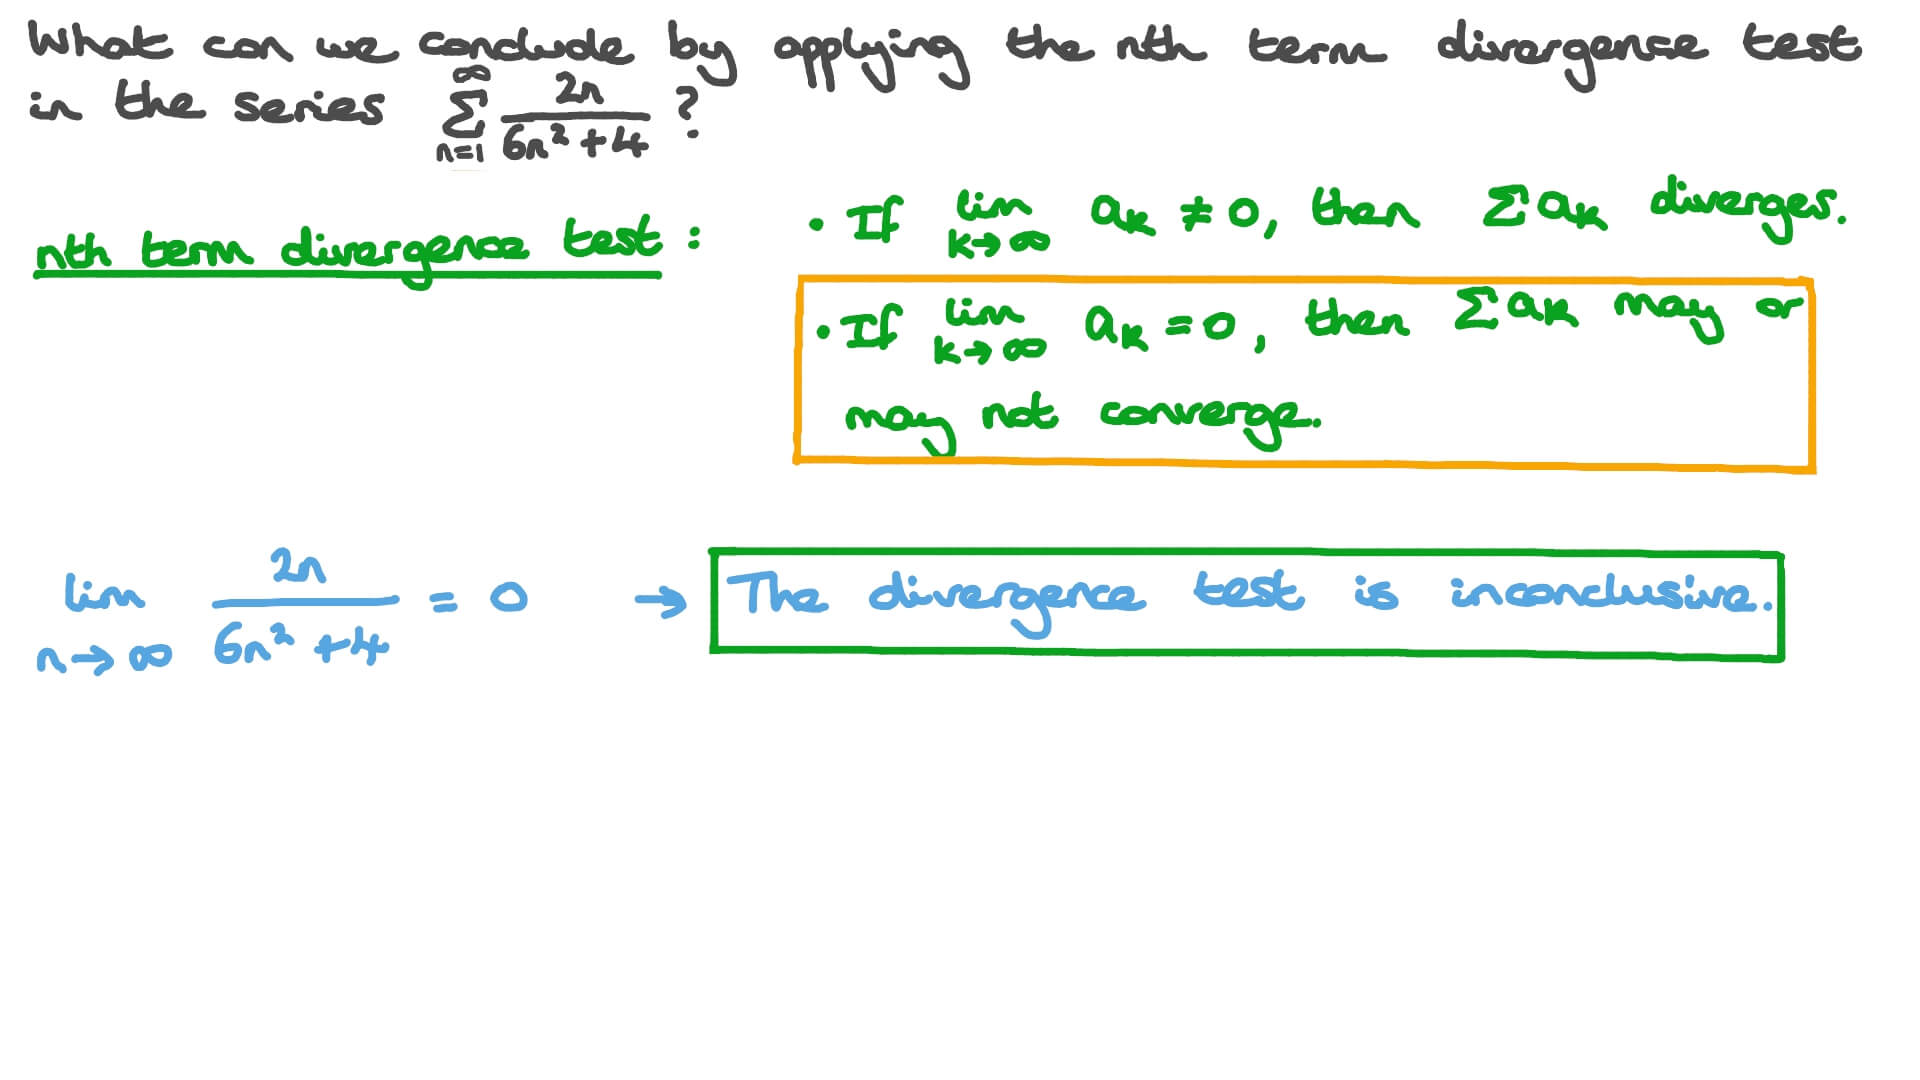 What can we conclude by applying the nth term divergence test
in the series ∑_{n=1}^{∞} 2n/(6n²+4) ?
nth term divergence test :
• If lim_{k→∞} aₖ ≠ 0, then ∑aₖ diverges.
• If lim_{k→∞} aₖ = 0, then ∑aₖ may or
may not converge.
lim_{n→∞} 2n/(6n²+4) = 0 → The divergence test is inconclusive.